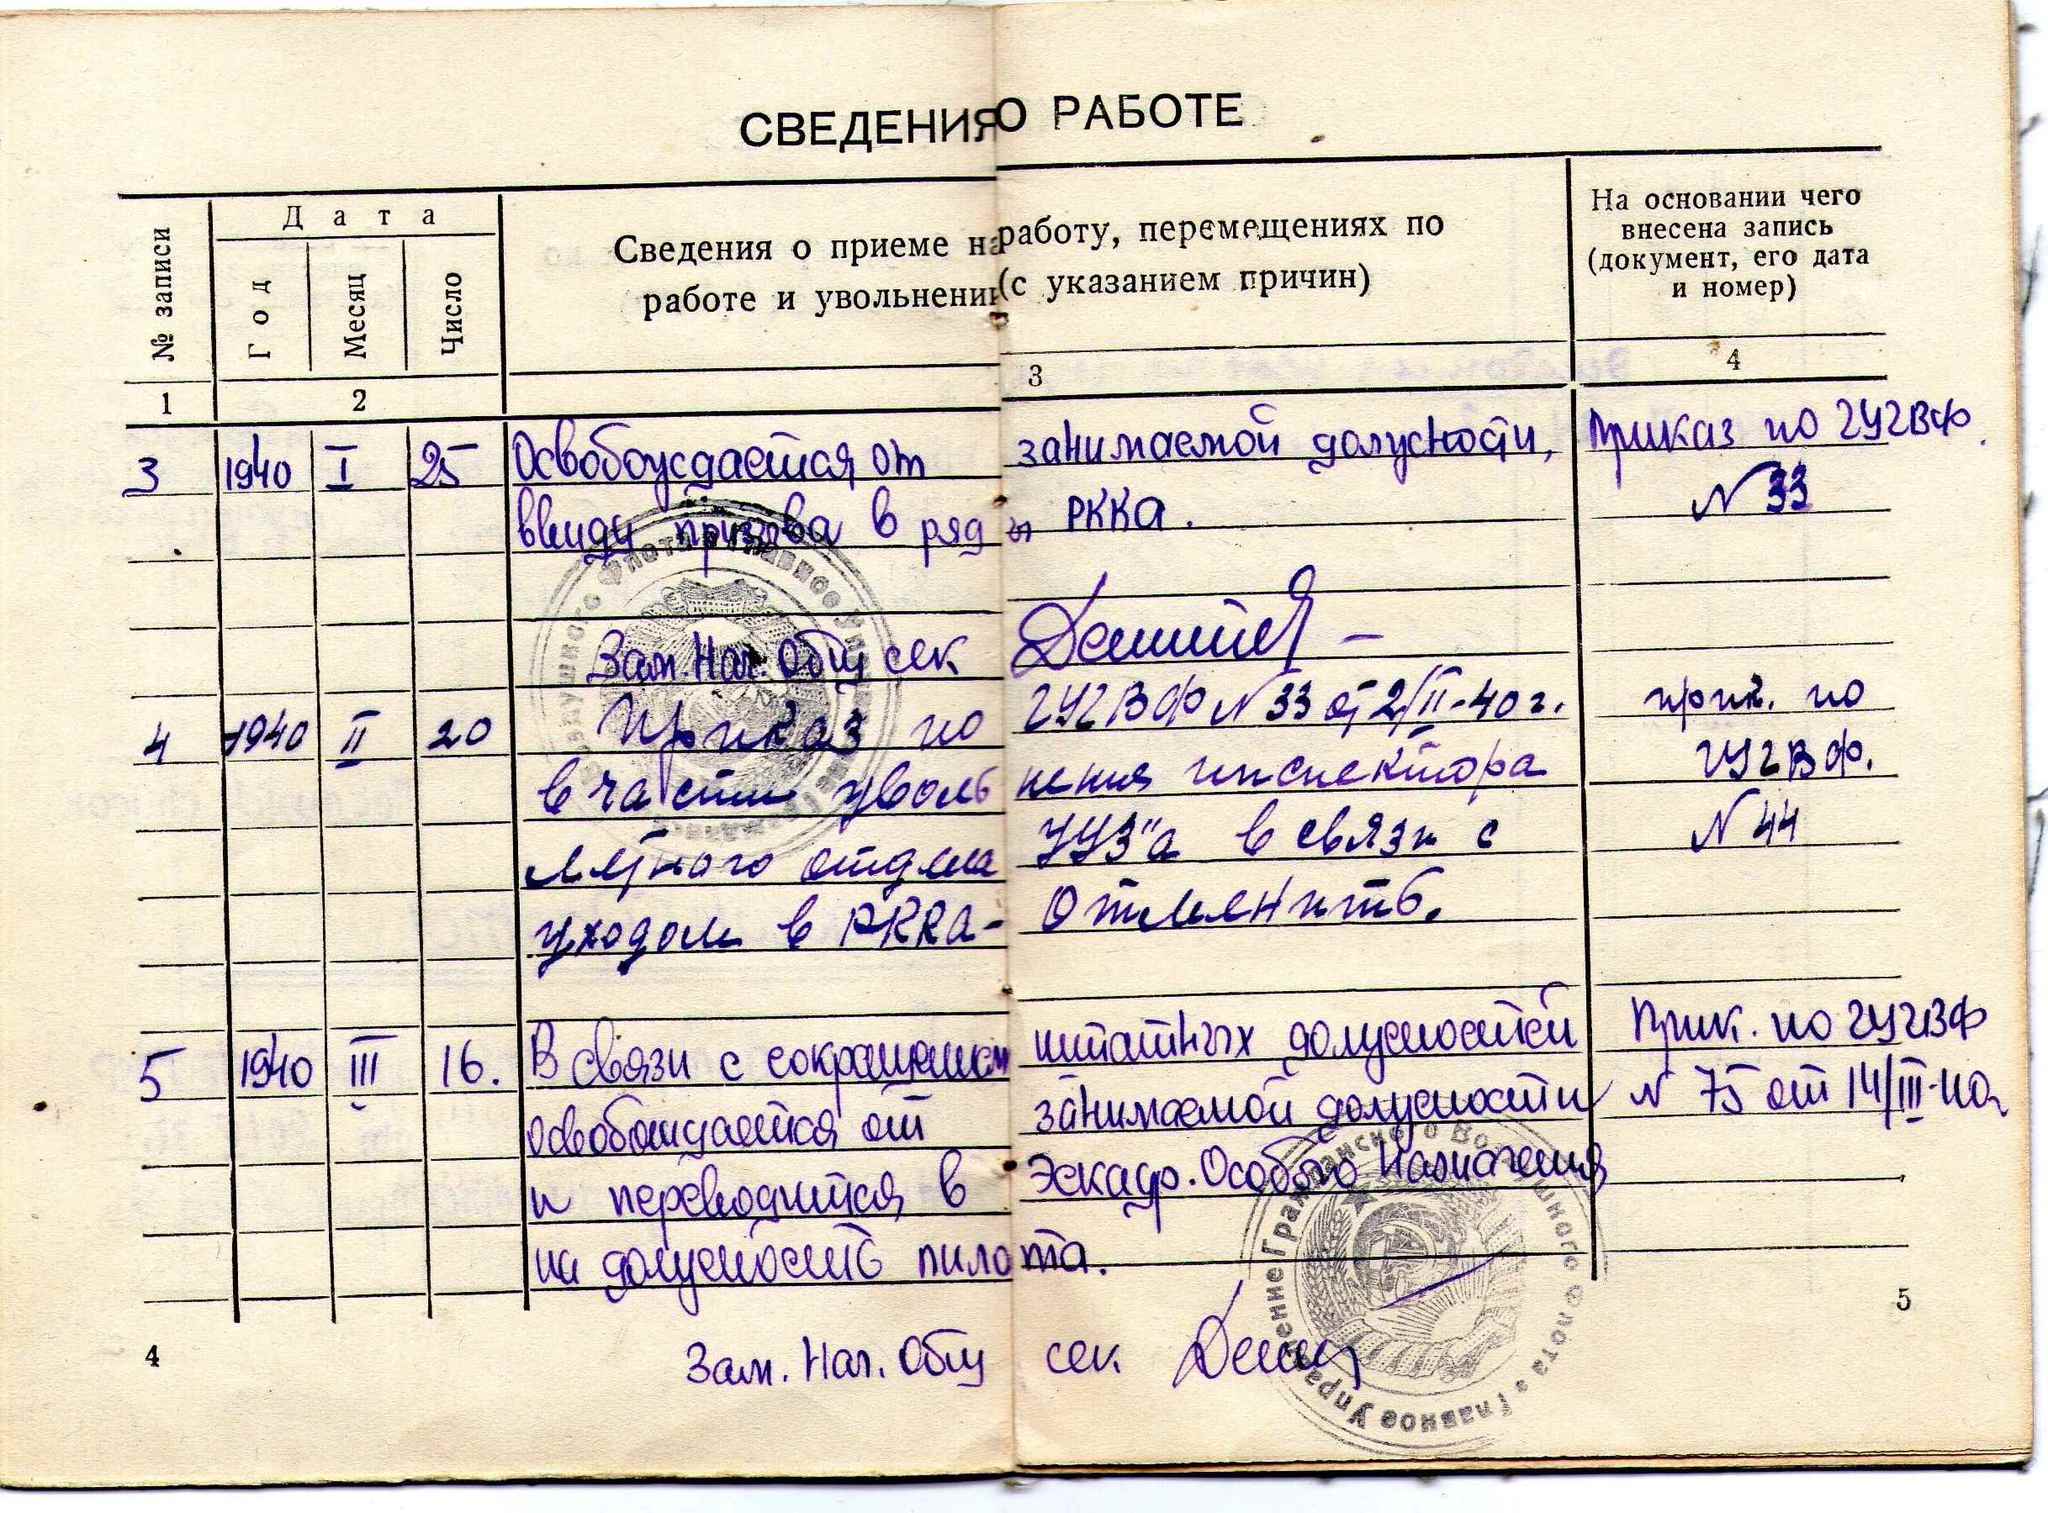 СВЕДЕНИЯ О РАБОТЕ
№ записи
Дата
Год
Месяц
Число
Сведения о приеме на работу, перемещениях по
работе и увольнении (с указанием причин)
На основании чего
внесена запись
(документ, его дата
и номер)
1 2 3 4
3 1940 I 25 Освобождается от занимаемой должности, Приказ по ГУГВФ.
ввиду призыва в ряды РККА. N 33
Зам. Нач. Общ сек
4 1940 II 20 Приказ по ГУГВФ N 33 от 2/II-40 г. прик. по
в части увольнения инспектора ГУГВФ.
Лётного отдела УУЗ"а в связи с N 44
уходом в РККА- Отменить.
5 1940 III 16. В связи с сокращением штатных должностей Прик. по ГУГВФ
освобождается от занимаемой должности N 75 от 14/III-40г
и переводится в Эскадр. Особого Назначения
на должность пилота.
Зам. Нач. Общ сек
4
5
Главное Управление Гражданского Воздушного Флота